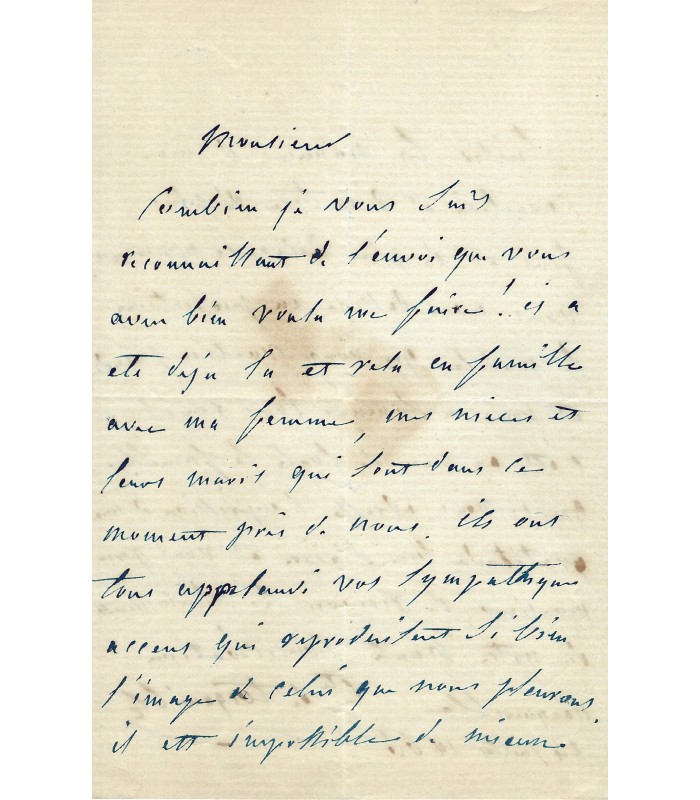 Monsieur
Combien je vous suis
reconnaissant de l'envoi que vous
avez bien voulu me faire! il a
ete deja lu et relu en famille
avec ma femme, mes nieces et
leurs maris qui sont dans ce
moment près de nous. ils ont
tous applaudi vos sympathique
accens qui reproduisent si bien
l'image de celui que nous pleurons.
il est impossible de mieux